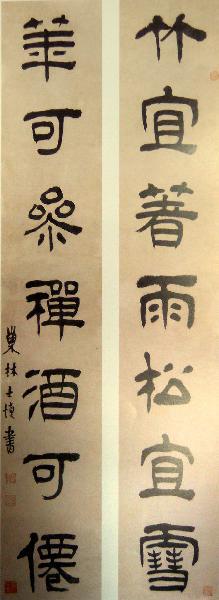 竹宜著雨松宜雪
華可參禪酒可僊
巢林士慎書